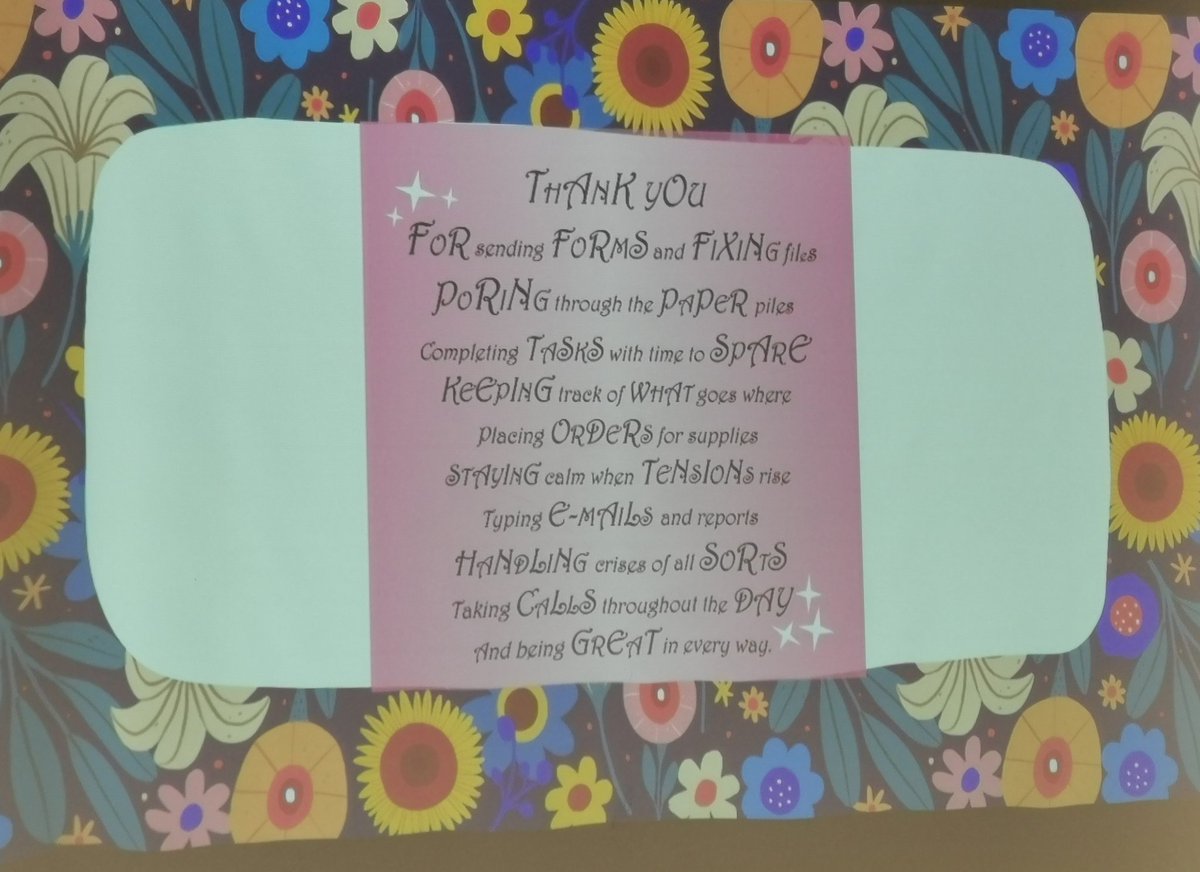 THANK YOU
FOR sending FORMS and FIXING files
PORING through the PAPER piles
Completing TASKS with time to SPARE
KEEPING track of WHAT goes where
Placing ORDERS for supplies
STAYING calm when TENSIONS rise
Typing E-MAILS and reports
HANDLING crises of all SORTS
Taking CALLS throughout the DAY
And being GREAT in every way.